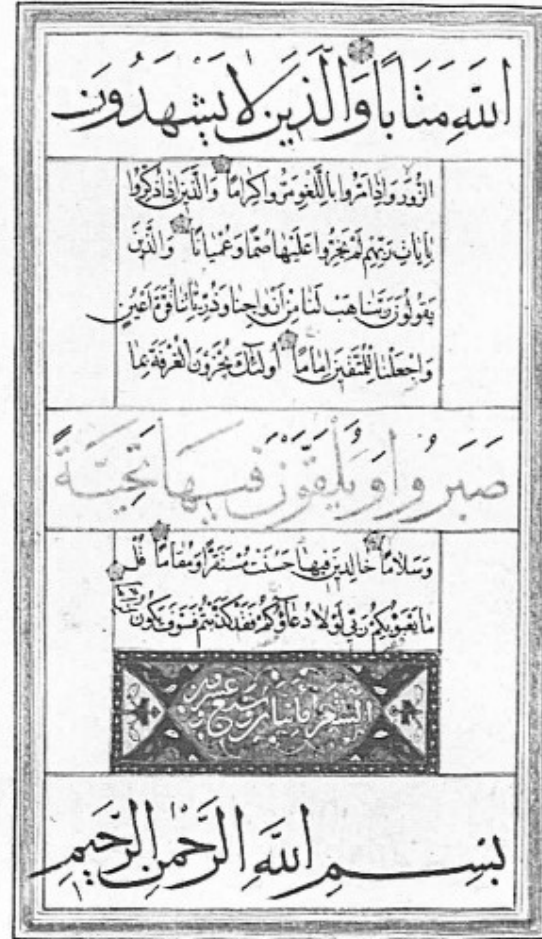 اللَّهِ مَتَابًا وَالَّذِينَ لَا يَشْهَدُونَ
الزُّورَ وَإِذَا مَرُّوا بِاللَّغْوِ مَرُّوا كِرَامًا وَالَّذِينَ إِذَا ذُكِّرُوا
بِآيَاتِ رَبِّهِمْ لَمْ يَخِرُّوا عَلَيْهَا صُمًّا وَعُمْيَانًا وَالَّذِينَ
يَقُولُونَ رَبَّنَا هَبْ لَنَا مِنْ أَزْوَاجِنَا وَذُرِّيَّاتِنَا قُرَّةَ أَعْيُنٍ
وَاجْعَلْنَا لِلْمُتَّقِينَ إِمَامًا أُولَئِكَ يُجْزَوْنَ الْغُرْفَةَ بِمَا
صَبَرُوا وَيُلَقَّوْنَ فِيهَا تَحِيَّةً
وَسَلَامًا خَالِدِينَ فِيهَا حَسُنَتْ مُسْتَقَرًّا وَمُقَامًا قُلْ
مَا يَعْبَؤُ بِكُمْ رَبِّي لَوْلَا دُعَاؤُكُمْ فَقَدْ كَذَّبْتُمْ فَسَوْفَ يَكُونُ لِزَامًا
الشعرا مائتان وسبع وعشرون
بِسْمِ اللَّهِ الرَّحْمَنِ الرَّحِيمِ